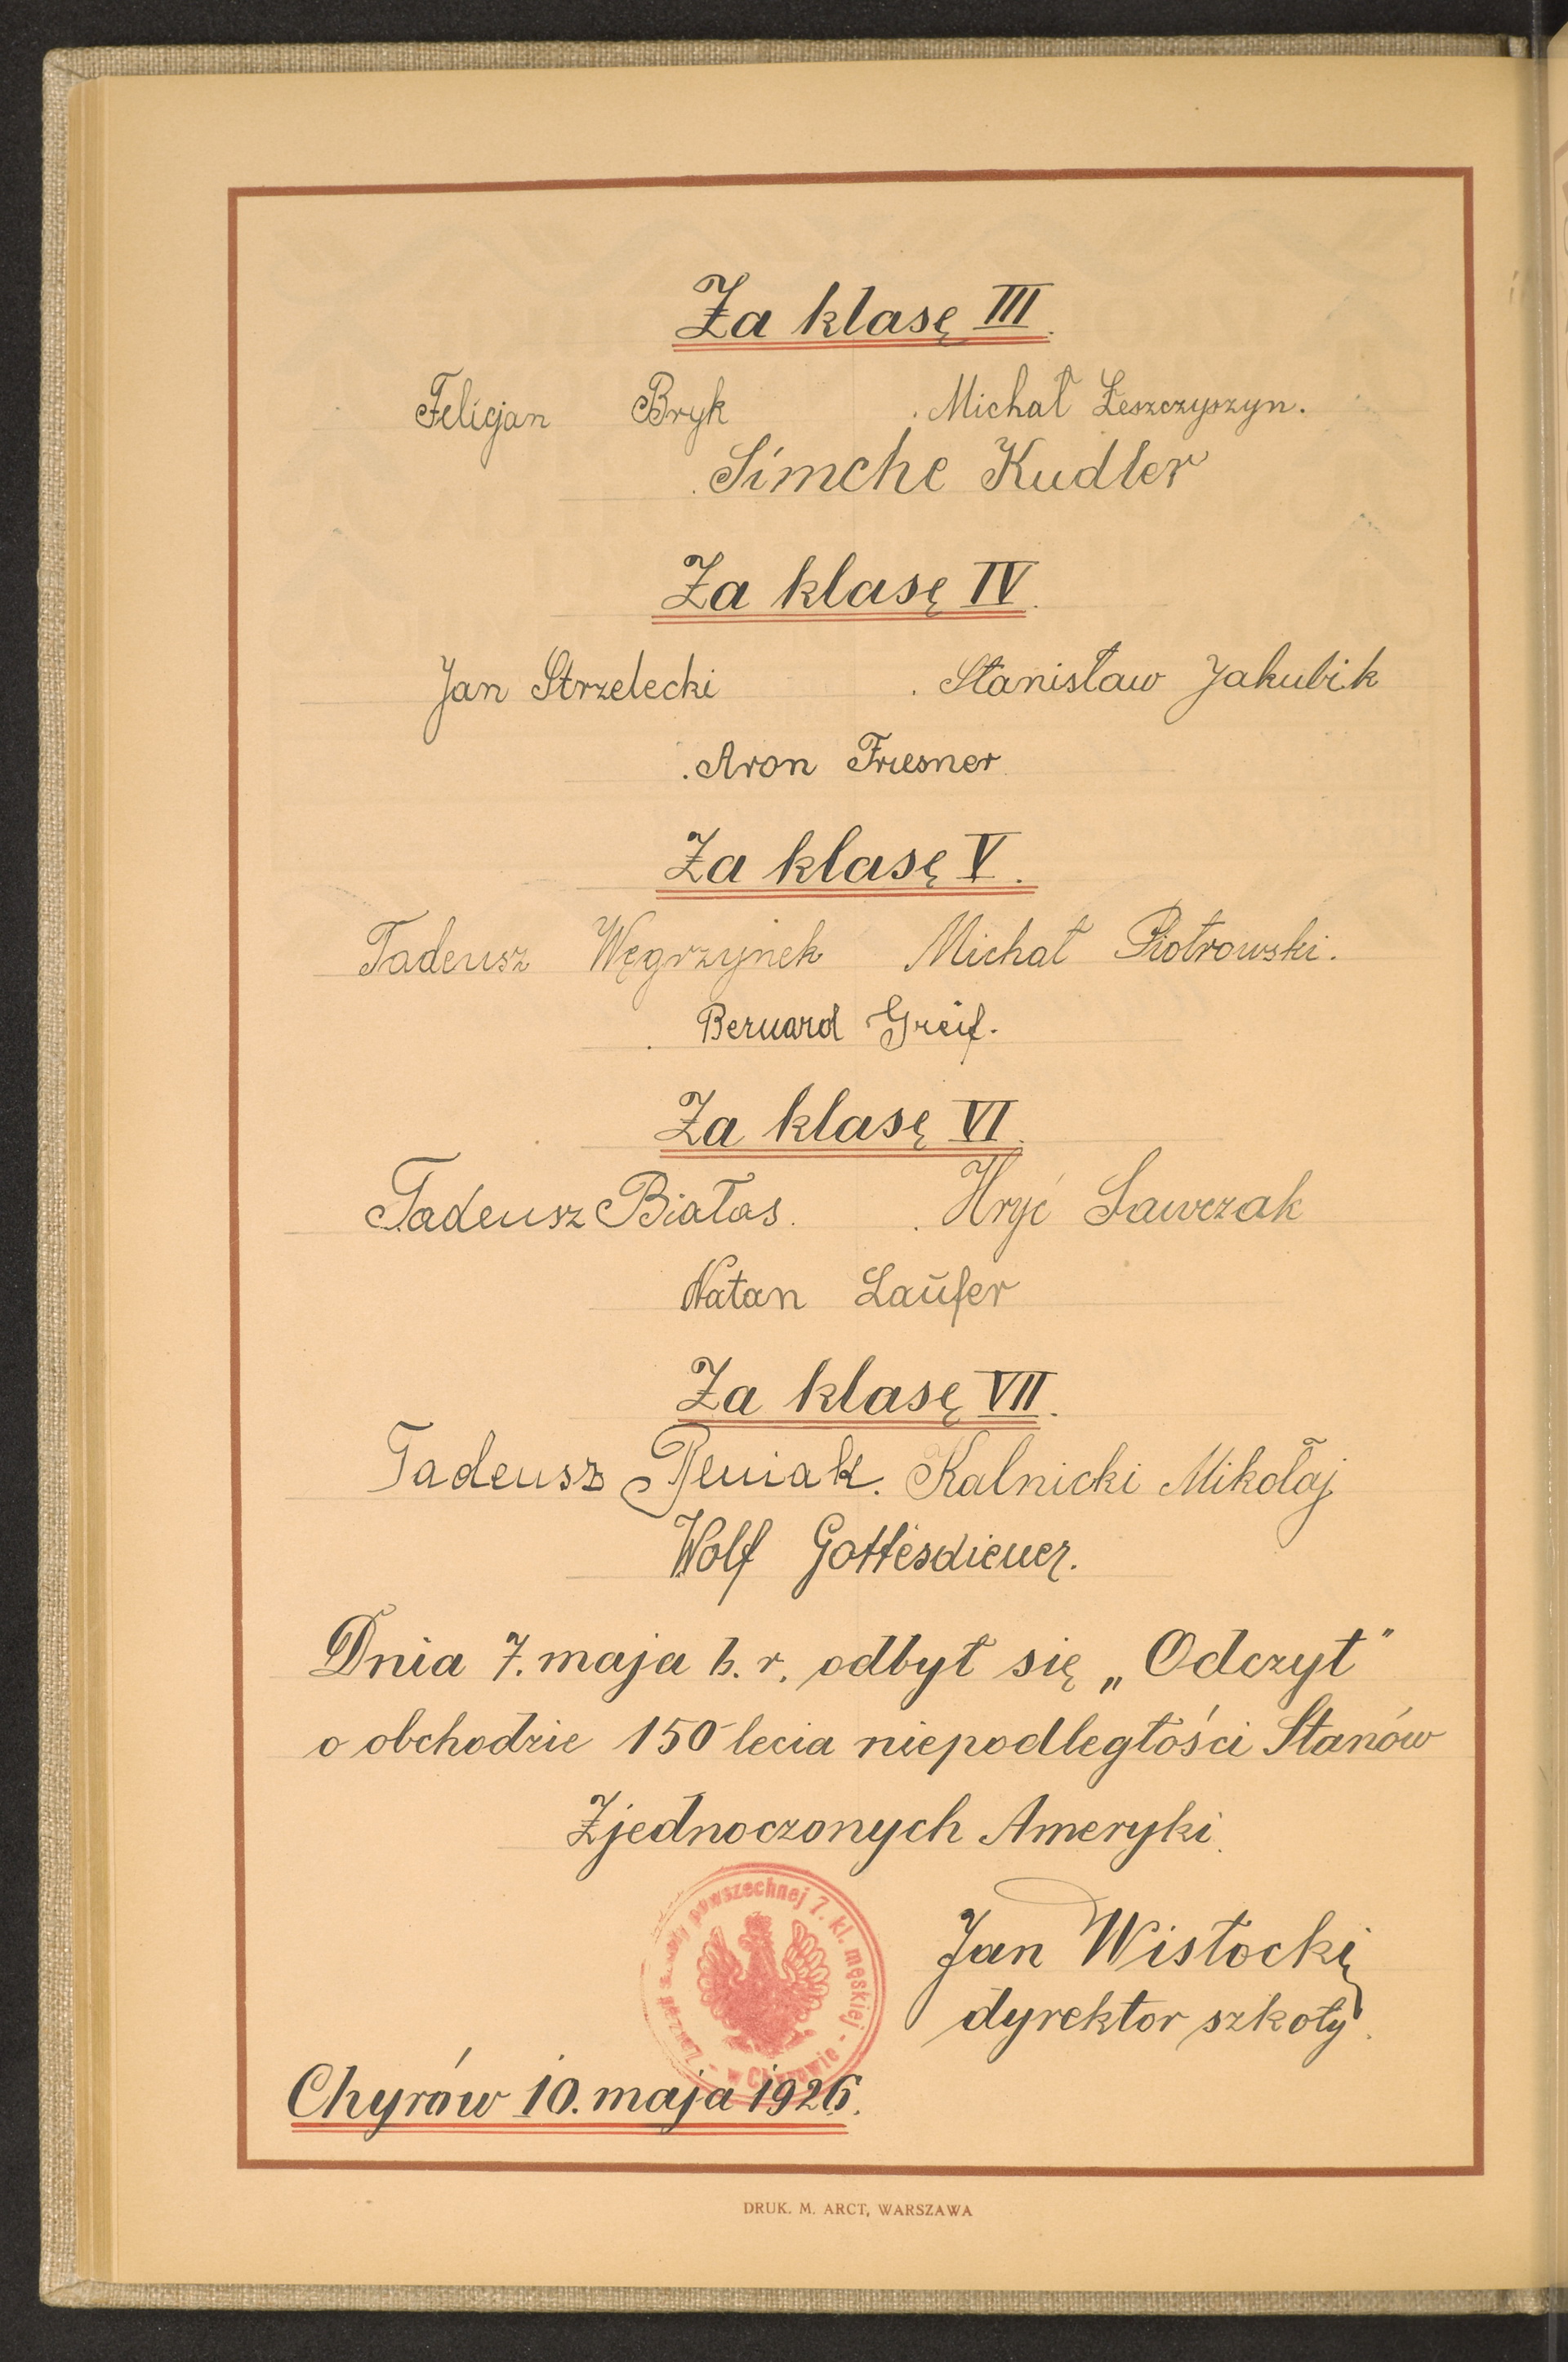 Za klasę III.
Felicjan Bryk Michał Leszczyszyn.
Simche Kudler
Za klasę IV.
Jan Strzelecki Stanisław Jakubik
Aron Friesner
Za klasę V.
Tadeusz Węgrzynek Michał Piotrowski.
Bernard Greif.
Za klasę VI.
Tadeusz Białas. Hryć Sawczak
Natan Laufer
Za klasę VII.
Tadeusz Peniak. Kalnicki Mikołaj
Wolf Gottesdiener.
Dnia 7. maja b. r. odbył się „Odczyt”
o obchodzie 150 lecia niepodległości Stanów
Zjednoczonych Ameryki.
powszechnej 7. kl. męskiej - w Chyrowie -
Jan Wisłocki
dyrektor szkoły.
Chyrów 10. maja 1926.
DRUK. M. ARCT, WARSZAWA